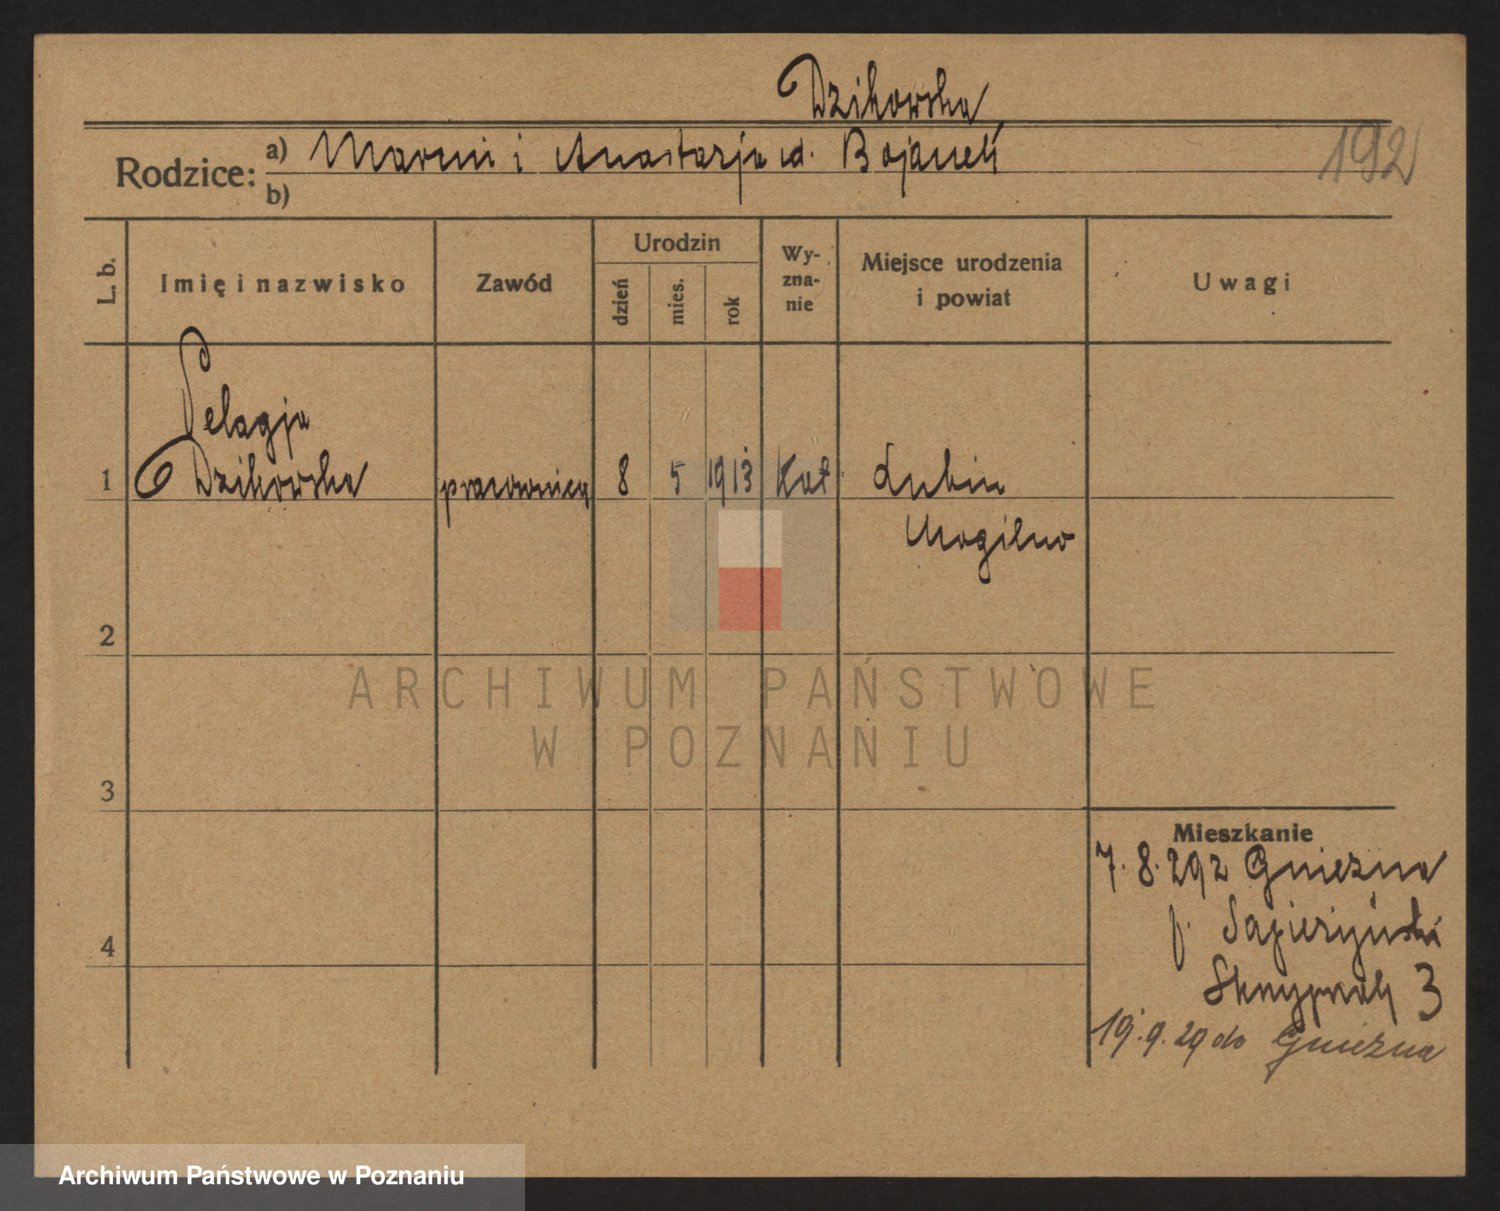 Dzikowska
Rodzice:
a) Marcin i Anastazja ud. Bojanek
b)
192
L. b.
Imię i nazwisko
Zawód
Urodzin
dzień
mies.
rok
Wy-
zna-
nie
Miejsce urodzenia
i powiat
Uwagi
Pelagja
1 Dzikowska pracownica 8 5 1913 Kat. Lubin
Mogilno
2
3
4
Mieszkanie
7.8.292 Gniezna
Skrzypnek 3
19.9.29 do Gniezna
ARCHIWUM PAŃSTWOWE
W POZNANIU
Archiwum Państwowe w Poznaniu